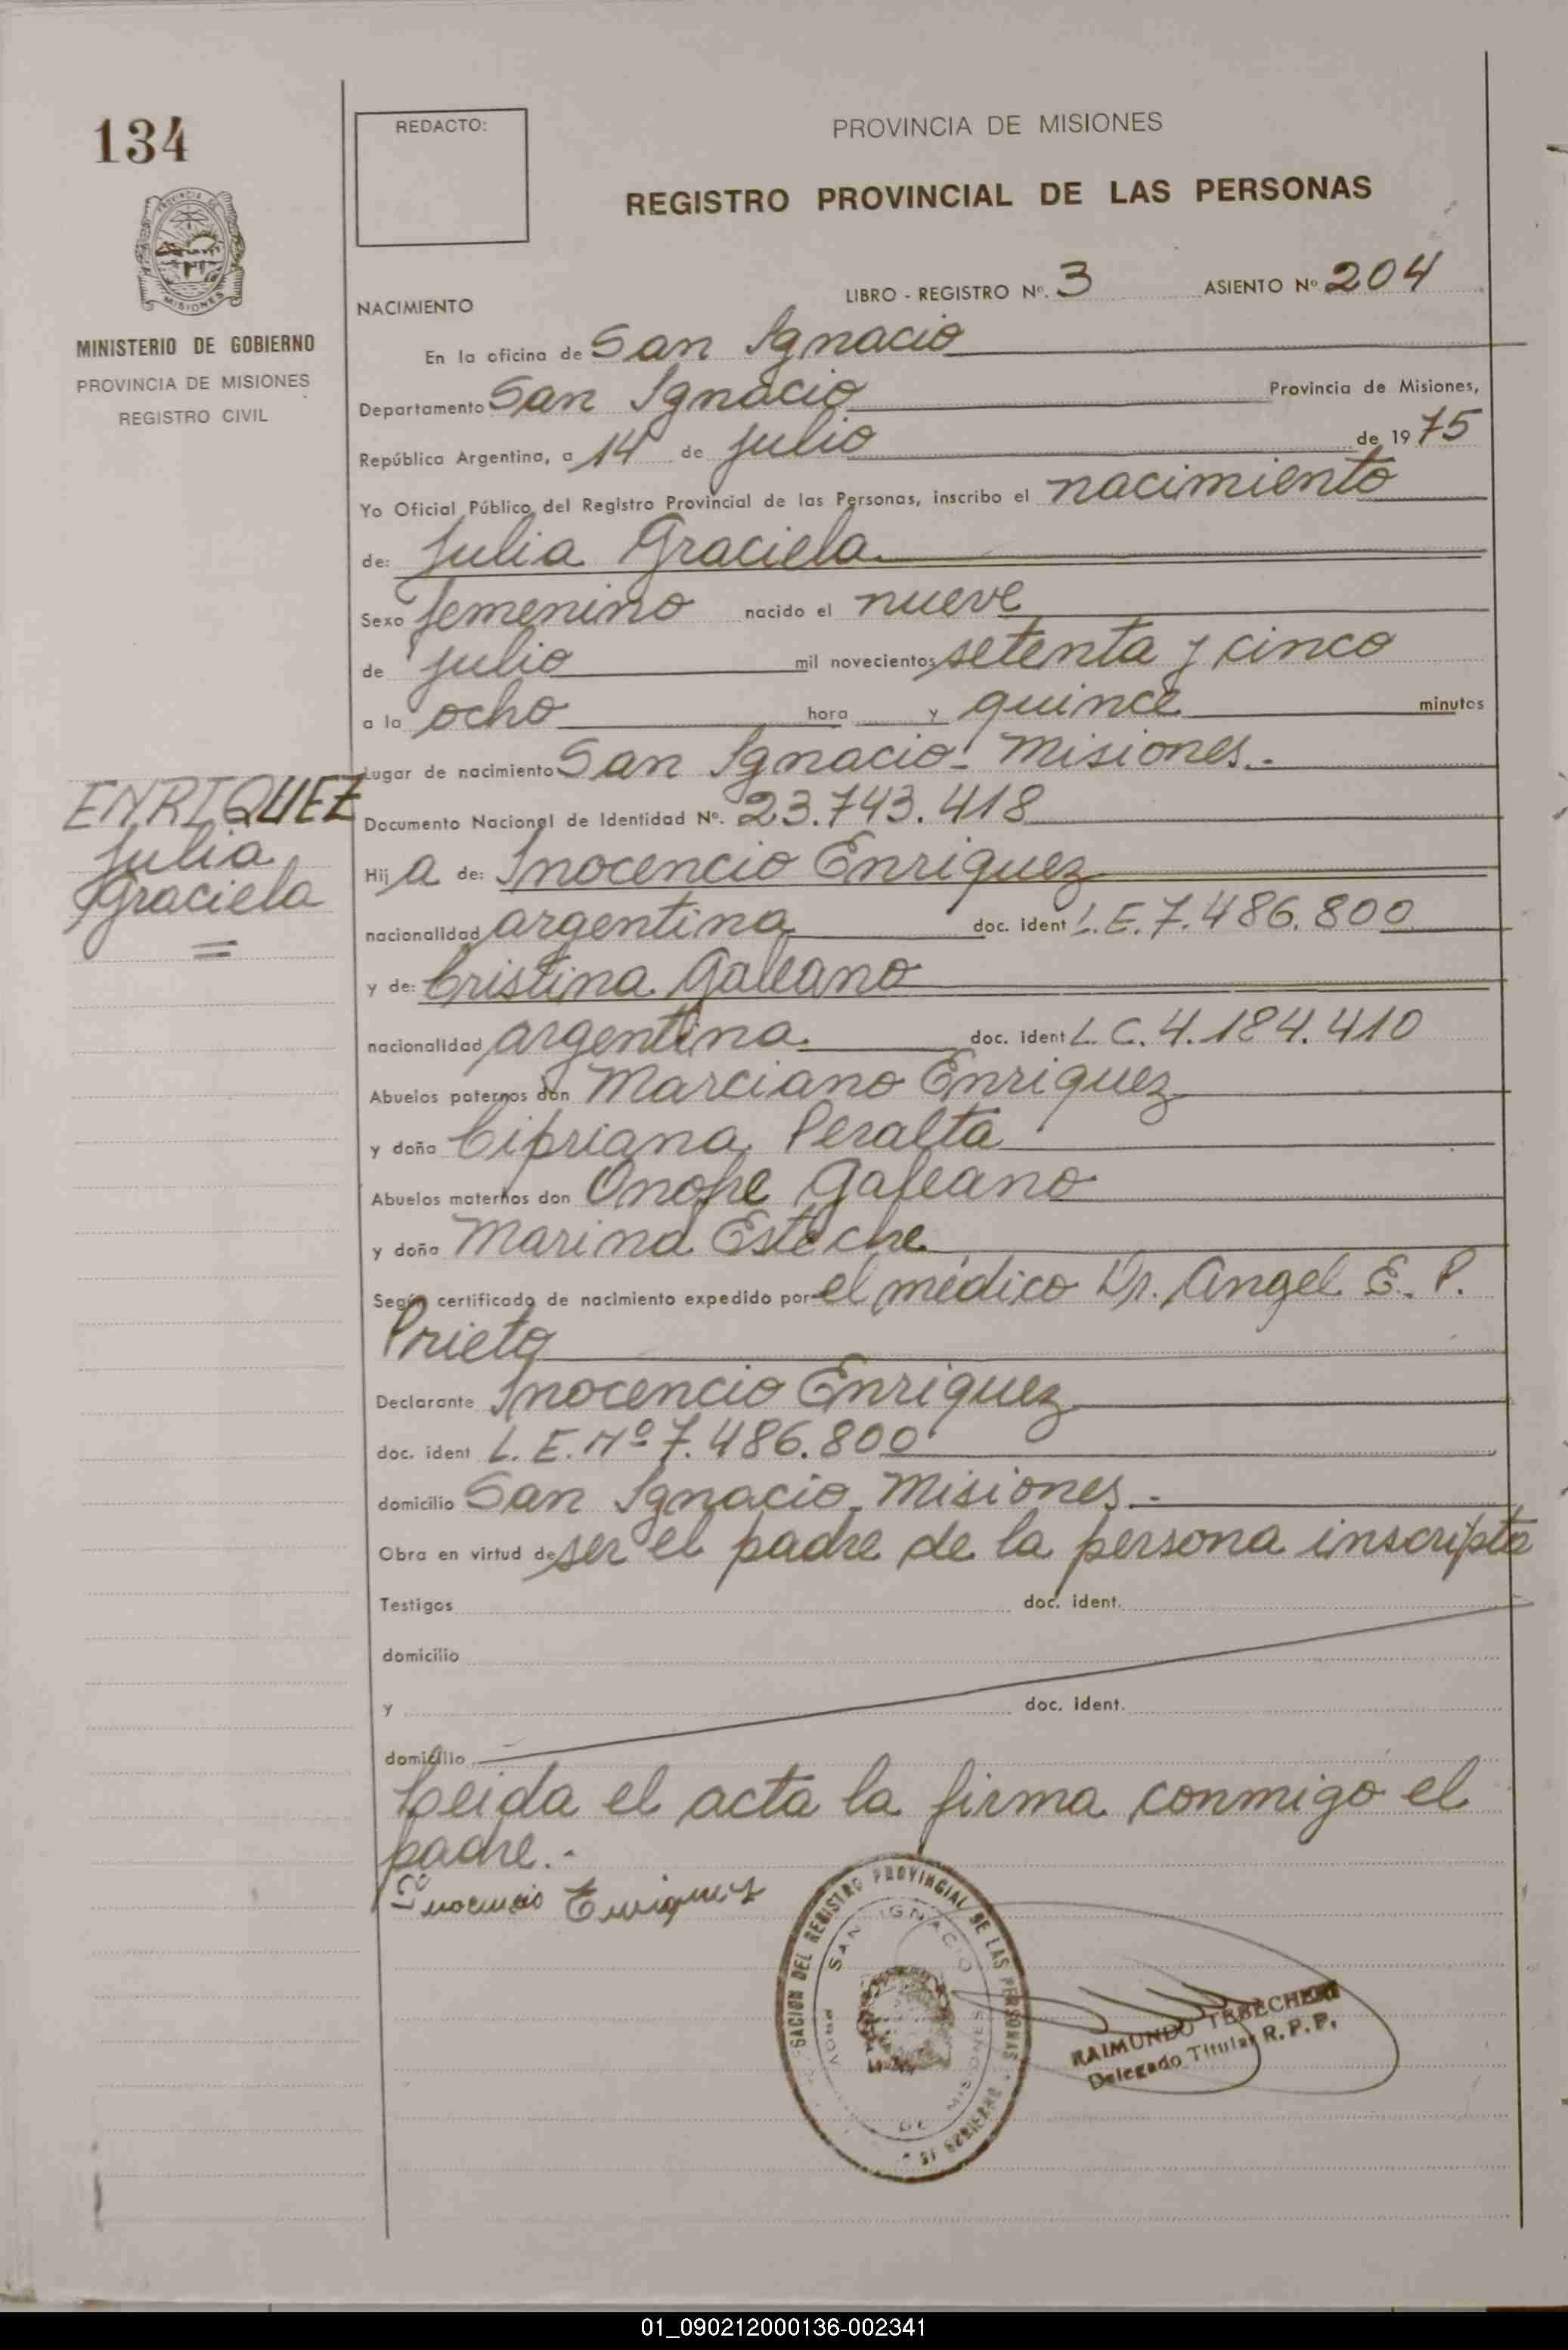 134
REDACTO:
PROVINCIA DE MISIONES
REGISTRO PROVINCIAL DE LAS PERSONAS
PROVINCIA DE
MISIONES
MINISTERIO DE GOBIERNO
PROVINCIA DE MISIONES
REGISTRO CIVIL
NACIMIENTO
LIBRO - REGISTRO Nº. 3 ASIENTO Nº 204
En la oficina de San Ignacio
Departamento San Ignacio Provincia de Misiones,
República Argentina, a 14 de julio de 1975
Yo Oficial Público del Registro Provincial de las Personas, inscribo el nacimiento
de: Julia Graciela
Sexo femenino nacido el nueve
de julio mil novecientos setenta y cinco
a la ocho hora y quince minutos
Lugar de nacimiento San Ignacio - Misiones.-
ENRIQUEZ
Julia
Graciela
Documento Nacional de Identidad Nº. 23.743.418
Hij a de: Inocencio Enriquez
nacionalidad argentina doc. ident L.E. 7.486.800
y de: Cristina Galeano
nacionalidad argentina doc. ident L.C. 4.184.410
Abuelos paternos don Marciano Enriquez
y doña Cipriana Peralta
Abuelos maternos don Onofre Galeano
y doña Marina Esteche
Según certificado de nacimiento expedido por el médico Dr. Angel E. P.
Prieto
Declarante Inocencio Enriquez
doc. ident L.E. Nº 7.486.800
domicilio San Ignacio - Misiones.-
Obra en virtud de ser el padre de la persona inscripta
Testigos doc. ident.
domicilio
y doc. ident.
domicilio
Leida el acta la firma conmigo el
padre.-
Inocencio Enriquez
REGISTRO PROVINCIAL DE LAS PERSONAS
SAN IGNACIO
PROV. DE MISIONES
RAIMUNDO
Delegado Titular R.P.P.
01_090212000136-002341